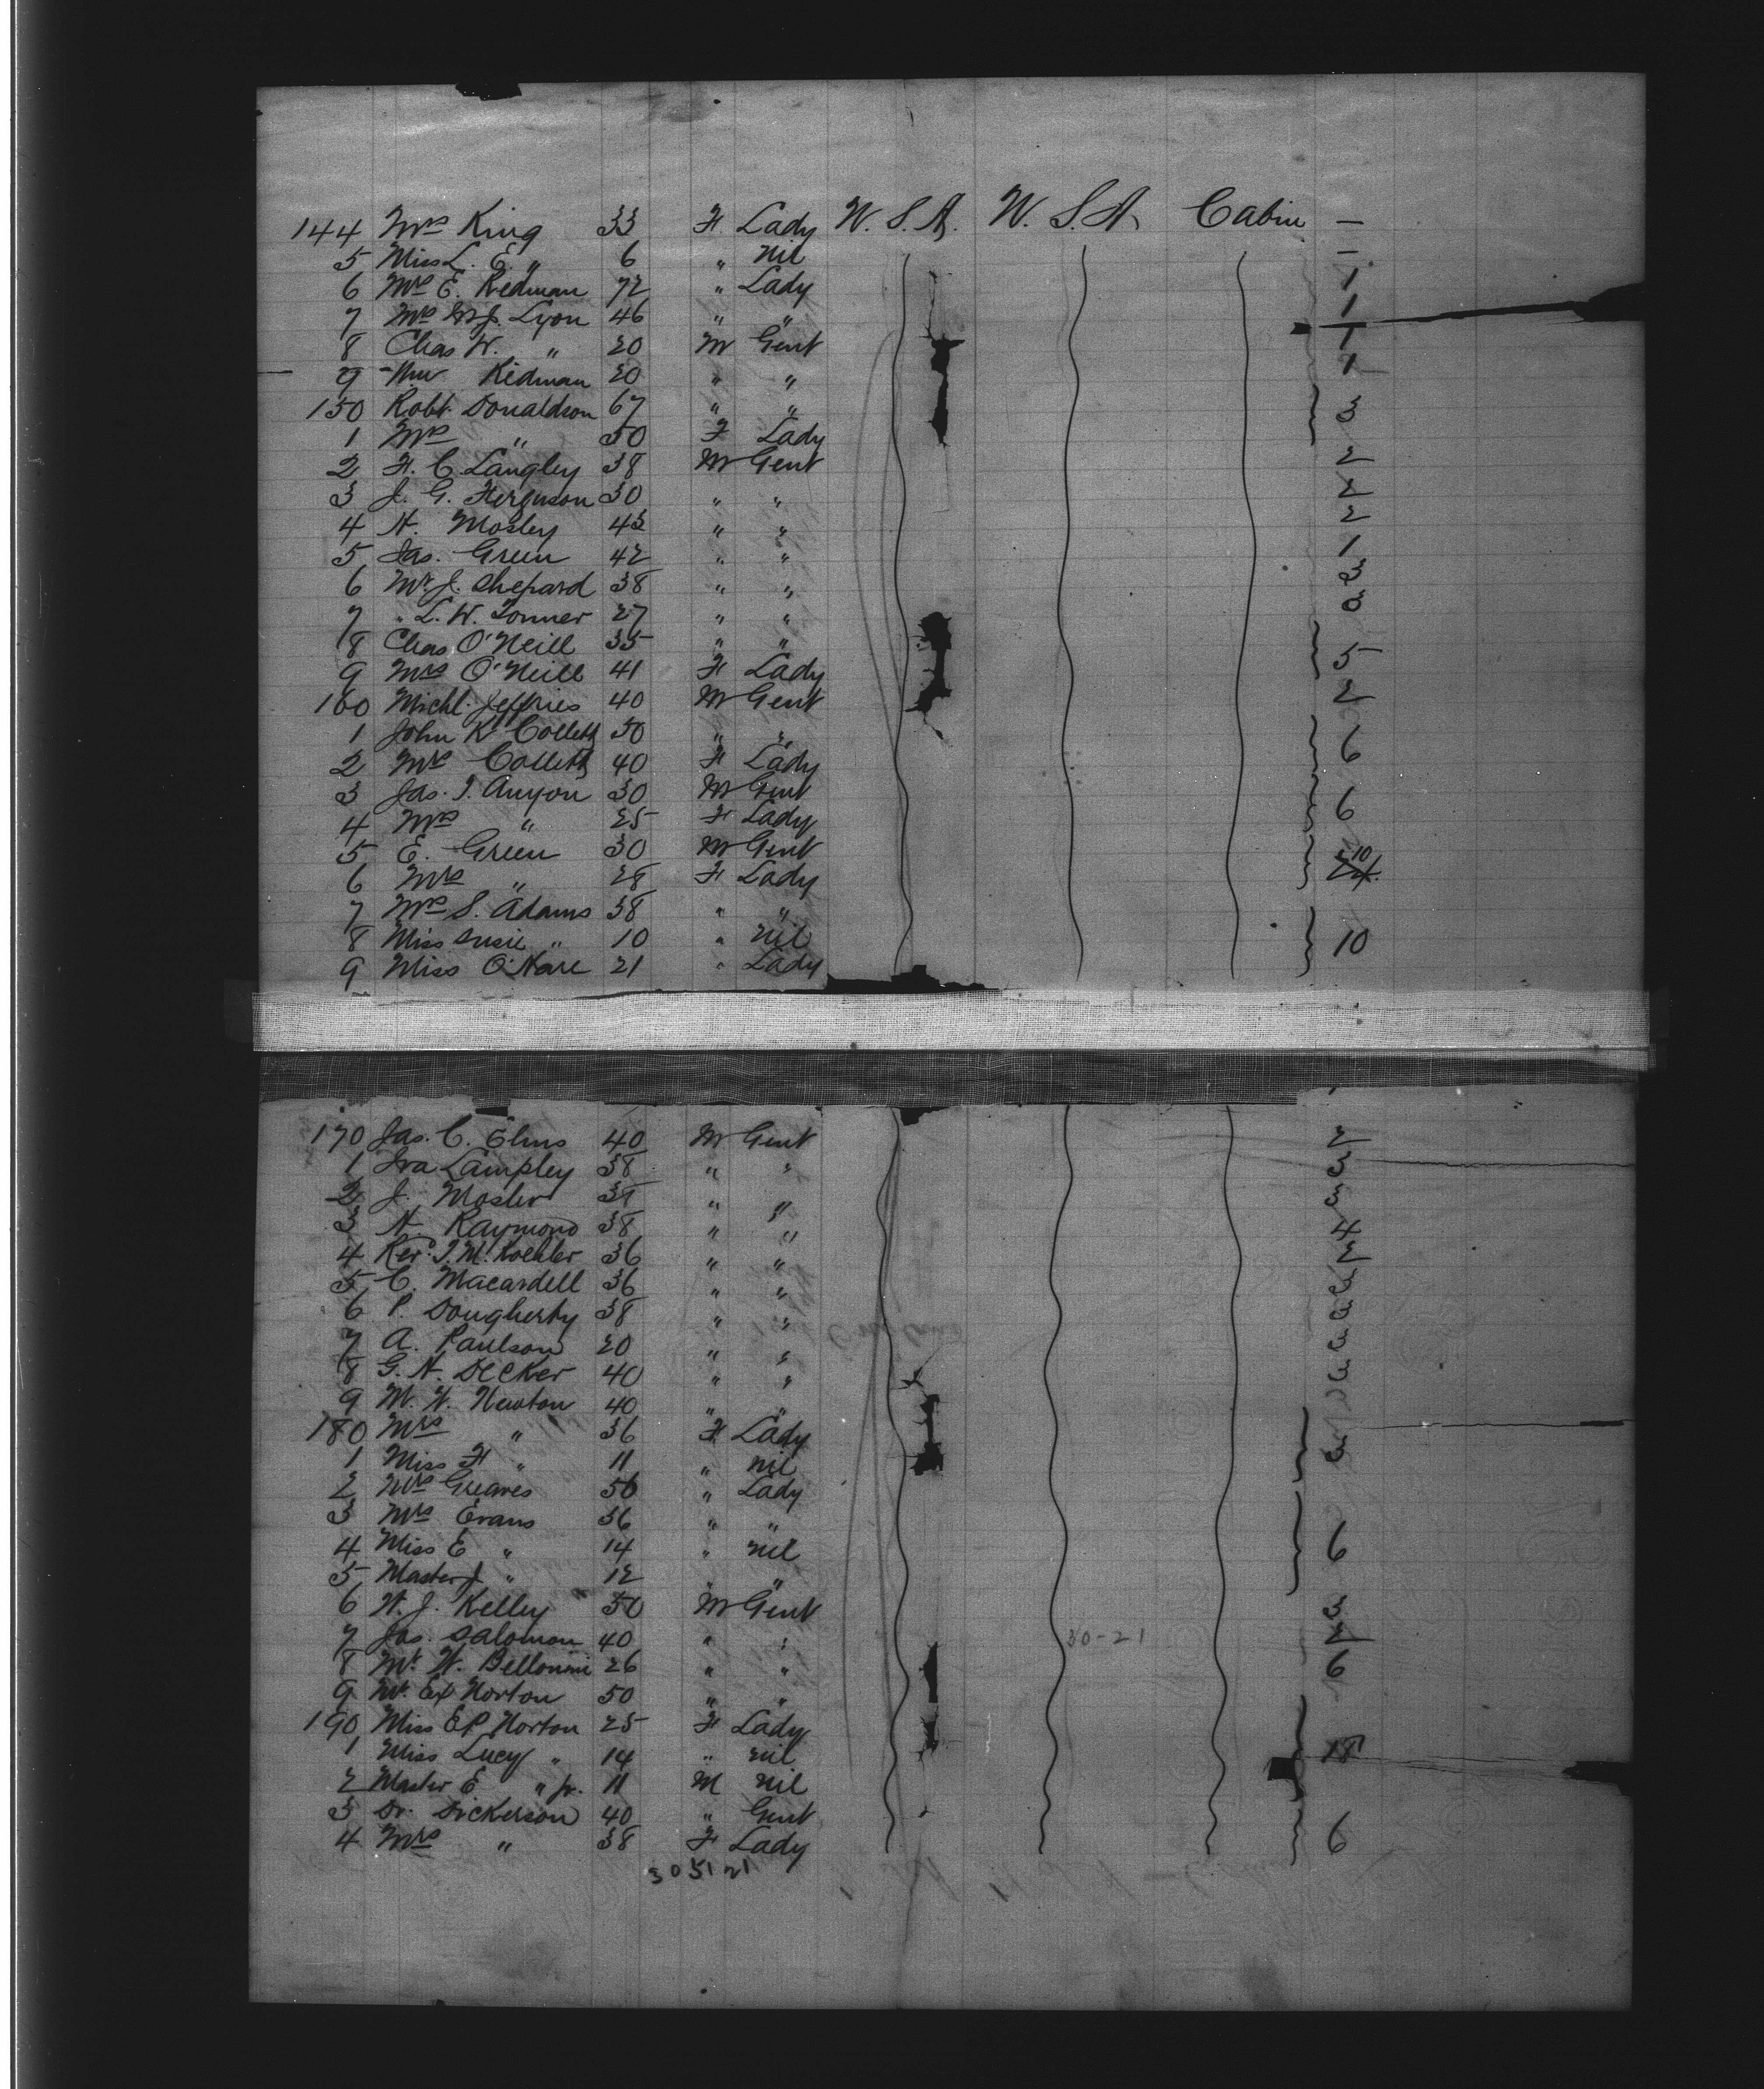 144 Mrs King 33 F Lady U.S.A. U.S.A. Cabin —
5 Miss L. E. " 6 " nil —
6 Mrs E. Redman 72 " Lady 1
7 Mrs W. J. Lyon 46 " " 1
8 Chas W. " 20 M Gent 1
9 Wm Redman 20 " " 1
150 Robt. Donaldson 67 " " 3
1 Mrs " 50 F Lady
2 F. C. Langley 38 M Gent 2
3 J. G. Ferguson 30 " " 2
4 H. Mosley 43 " " 2
5 Jas. Green 42 " " 1
6 Mr. J. Shepard 38 " " 3
7 " L. W. Tonner 27 " " 3
8 Chas O'Neill 35 " "
9 Mrs O'Neill 41 F Lady 5
160 Michl. Jeffries 40 M Gent 2
1 John K Collett 50 " "
2 Mrs Collett 40 F Lady 6
3 Jas. T. Anyon 30 M Gent
4 Mrs " 25 F Lady 6
5 E. Green 30 M Gent 10
6 Mrs " 28 F Lady
7 Mrs S. Adams 38 " "
8 Miss Susie " 10 " nil 10
9 Miss O'Hare 21 " Lady
170 Jas. C. Elms 40 M Gent 2
1 Ira Lampley 38 " " 3
2 J. Mosler " " 3
3 H. Raymond 38 " " 4
4 Rev. T. M. Koehler 36 " " 2
5 C. Macardell 36 " " 3
6 P. Dougherty 38 " " 3
7 A. Paulson 20 " " 3
8 G. H. Decker 40 " " 3
9 M. W. Newton 40 " "
180 Mrs " 36 F Lady 3
1 Miss F " 11 " nil
2 Mrs Greaves 56 " Lady
3 Mrs Evans 36 " "
4 Miss E " 14 " nil 6
5 Master J " 12 " "
6 W. J. Kelley 50 M Gent 3
7 Jas. Salomon 40 " " 30-21 2
8 Mr. W. Bellonini 26 " " 6
9 Mr. Ex Norton 50 " "
190 Miss E P Norton 25 F Lady
1 Miss Lucy " 14 " nil 18
2 Master E " Jr. 11 M nil
3 Dr. Dickerson 40 " Gent
4 Mrs " 38 F Lady 6
305121